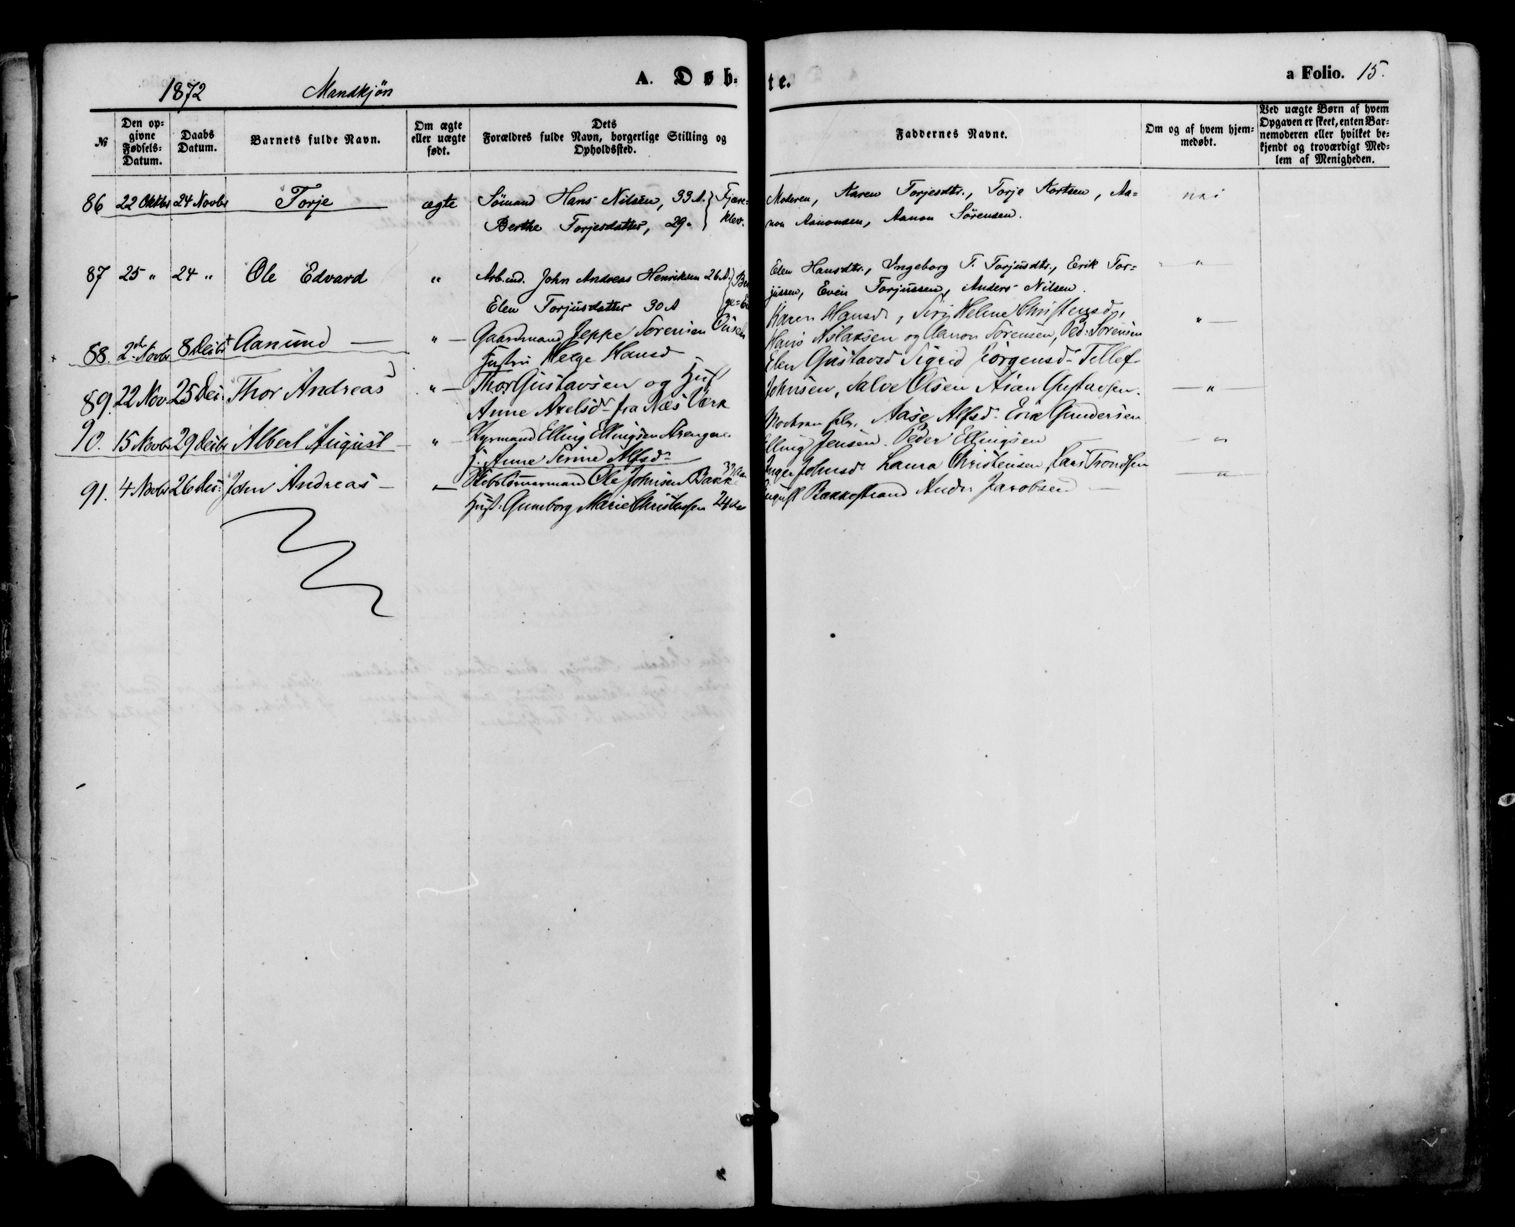 1872 Mandkjøn A. Døb-
te. a Folio. 15.
№ Den op-
givne
Fødsels-
Datum. Daabs
Datum. Barnets fulde Navn. Om ægte
eller uægte
født. Dets
Forældres fulde Navn, borgerlige Stilling og
Opholdssted.
Faddernes Navne. Om og af hvem hjem-
medøbt. Ved uægte Børn af hvem
Opgaven er skeet, enten Bar-
nemoderen eller hvilket be-
kjendt og troværdigt Med-
lem af Menigheden.
86 22 Oktbr 24 Novbr Torje ægte Sømand Hans Nilsen, 33 A.
Berthe Torjesdatter, 29 " Fjære-
klev.
Moderen, Karen Torjesdtr., Torje Kortsen, Aa-
non Aanonsen, Aanon Sørensen. nei
87 25 " 24 " Ole Edvard " Arb.md. John Andreas Henriksen 26 A.
Elen Torjusdatter 30 A
Elen Hansdtr., Ingeborg T. Torjusdtr., Erik Tor-
jussen, Even Torjussen, Anders Nilsen. "
88. 2d Novbr 8 Decbr Aanund — " — Gaardmand Jeppe Sørensen
Hustru Helge Hansd
Karen Hansd, Siri Helene Christensd,
Hans Aslaksen og Aanon Sørensen, Ped. Sørensen "
89. 22 Nov. 25 Dec: Thor Andreas " — Thor Gustavsen og Hust
Anne Axelsd fra Næs Værk
Elen Gustavsd Sigrid Jørgensd Tellef
Johnsen, Salve Olsen Gustavsen. — " —
90. 15 Novbr 29 Decbr Albert August — " Elling Ellingsen
H. Anne Serine Alfsd
Aase Alfsd. Erik Gundersen
Elling Jensen Peder Ellingsen — "
91. 4 Novbr 26 Dec: John Andreas — " Ole Johnsen Bakke
Hust. Gunborg Marie Christensen 24
Inger Johnsd Laura Christensen, Lars Trondsen
August Bakkestrand Andr Jacobsen — "